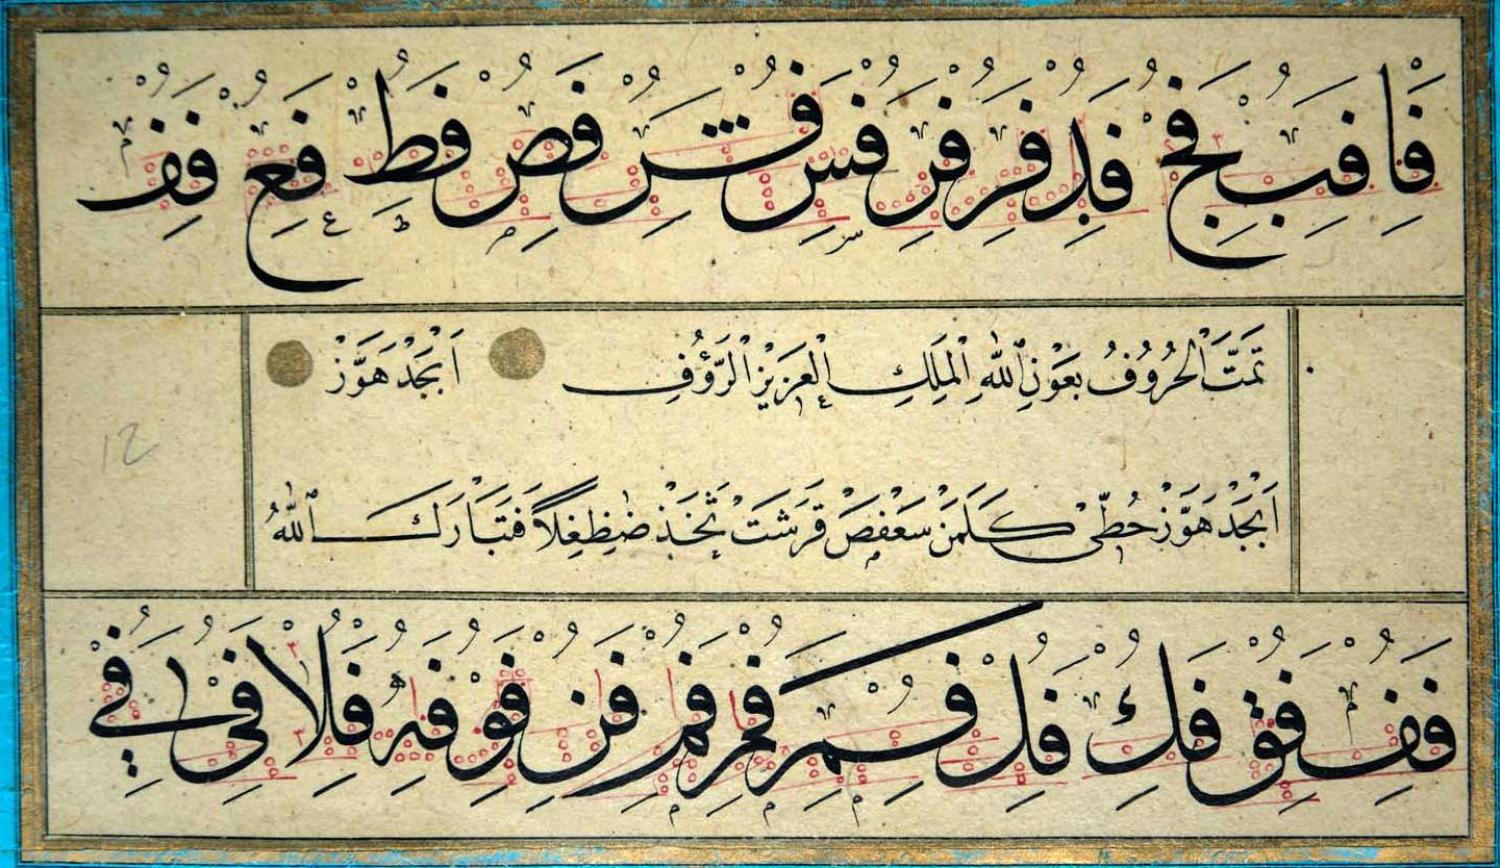 فا فب فج فد فر فر فس فش فص فط فع فف
تمت الحروف بعون الله الملك العزيز الرؤف ابجد هوز
12
ابجد هوز حطى كلمن سعفص قرشت ثخذ ضظغلا فتبارك الله
فف فق فك فل فم فم فم فن فو فه فلا فى فى